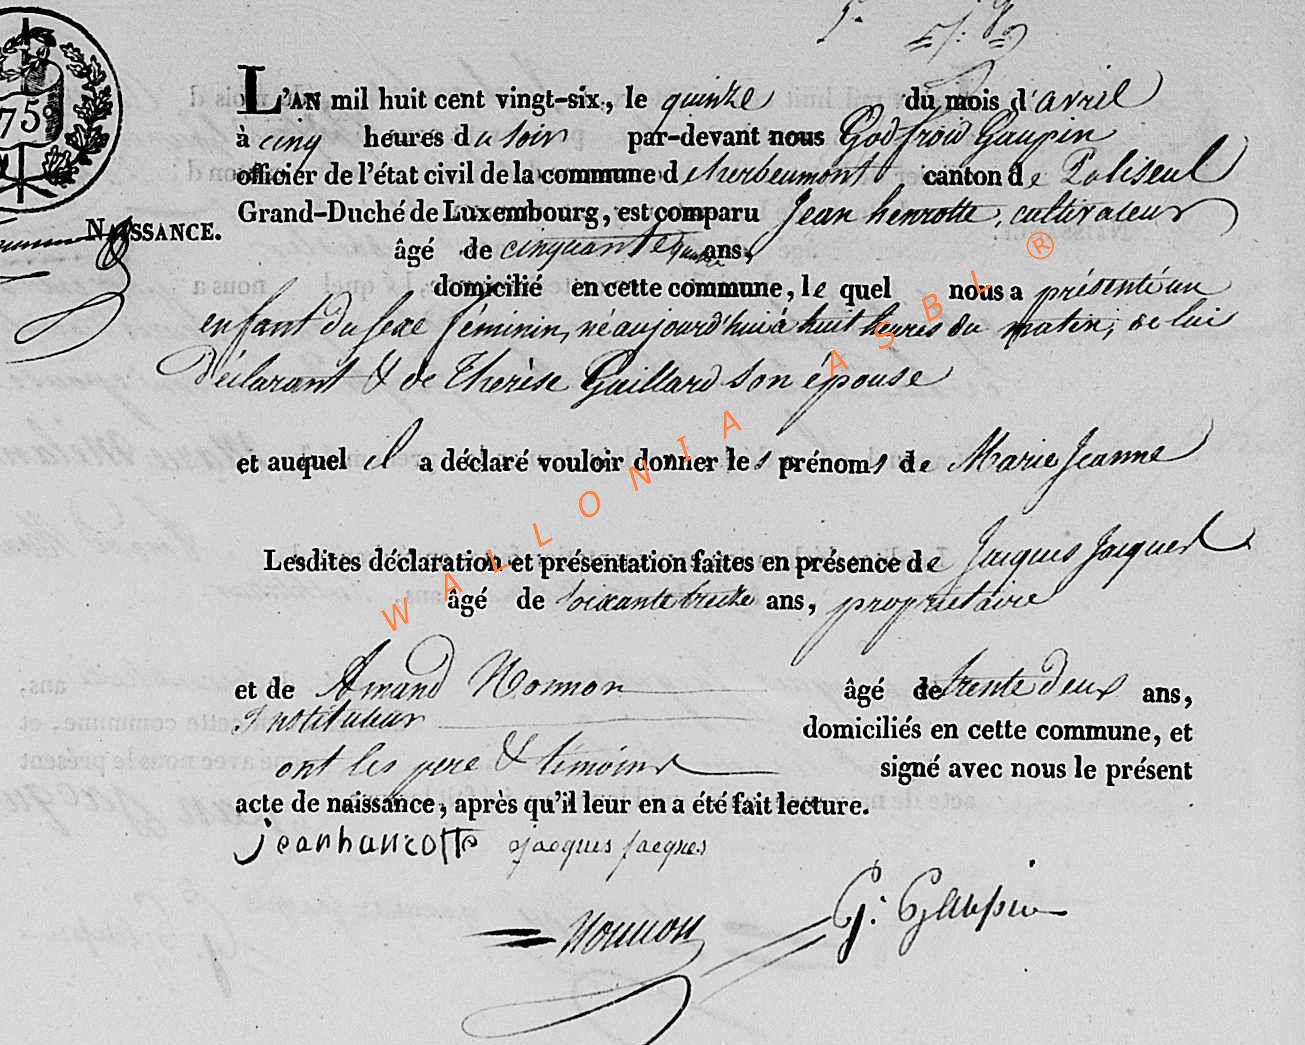 75
L'AN mil huit cent vingt-six, le quinze du mois d'avril
à cinq heures du soir par-devant nous Godfroid Gaupin
officier de l'état civil de la commune d'herbeumont canton de Paliseul
Grand-Duché de Luxembourg, est comparu Jean henrotte, cultivateur
NAISSANCE.
âgé de cinquante quatre ans,
domicilié en cette commune, le quel nous a présenté un
enfant du sexe féminin, né aujourd'hui à huit heures du matin, de lui
déclarant & de Thérèse Gaillard son épouse
et auquel il a déclaré vouloir donner les prénoms de Marie Jeanne
Lesdites déclaration et présentation faites en présence de Jacques Jacques
âgé de soixante treize ans, propriétaire
et de Amand Nonnon âgé de trente deux ans,
Instituteur domiciliés en cette commune, et
ont les pere & témoins signé avec nous le présent
acte de naissance, après qu'il leur en a été fait lecture.
jean hanrotte jacques jacques
Nonnon G: Gaupin
WALLONIA ASBL ®